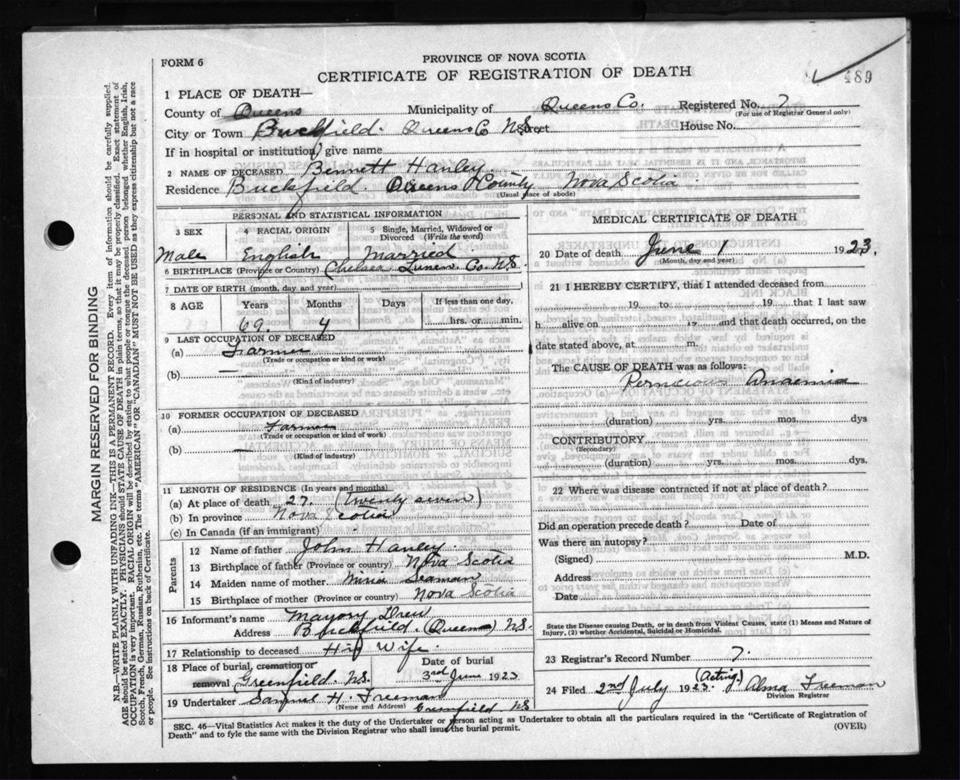 489
FORM 6
PROVINCE OF NOVA SCOTIA
CERTIFICATE OF REGISTRATION OF DEATH
1 PLACE OF DEATH—
County of Queens Municipality of Queens Co. Registered No. 7
(For use of Registrar General only)
City or Town Buckfield. Queens Co NS Street House No.
If in hospital or institution, give name
2 NAME OF DECEASED Bennett Hanley
Residence Buckfield. Queens County Nova Scotia
(Usual place of abode)
PERSONAL AND STATISTICAL INFORMATION
3 SEX 4 RACIAL ORIGIN 5 Single, Married, Widowed or Divorced (Write the word)
Male English Married
6 BIRTHPLACE (Province or Country) Chelsea Lunen. Co. N.S.
7 DATE OF BIRTH (month, day, and year)
8 AGE Years Months Days If less than one day,
69. 4 hrs. or min.
9 LAST OCCUPATION OF DECEASED
(a) Farmer
(Trade or occupation or kind or work)
(b) —
(Kind of industry)
10 FORMER OCCUPATION OF DECEASED
(a) Farmer
(Trade or occupation or kind of work)
(b) —
(Kind of industry)
11 LENGTH OF RESIDENCE (In years and months)
(a) At place of death 27. (twenty seven)
(b) In province Nova Scotia
(c) In Canada (if an immigrant)
Parents
12 Name of father John Hanley.
13 Birthplace of father (Province or country) Nova Scotia
14 Maiden name of mother Mina Seaman
15 Birthplace of mother (Province or country) Nova Scotia
16 Informant's name Mayory Drew
Address Buckfield. (Queens) N.S.
17 Relationship to deceased His Wife.
18 Place of burial, cremation or removal Greenfield. N.S. Date of burial 3rd June 1923
19 Undertaker Samuel H. Freeman
(Name and Address) Greenfield N.S.
MEDICAL CERTIFICATE OF DEATH
20 Date of death June 1 1923.
(Month, day and year)
21 I HEREBY CERTIFY, that I attended deceased from
19 to 19 that I last saw
h alive on 19 and that death occurred, on the
date stated above, at m.
The CAUSE OF DEATH was as follows:
Pernicious Anaemia
(duration) yrs. mos. dys
CONTRIBUTORY
(Secondary)
(duration) yrs. mos. dys.
22 Where was disease contracted if not at place of death?
Did an operation precede death? Date of
Was there an autopsy?
(Signed) M.D.
Address
Date
State the Disease causing Death, or in death from Violent Causes, state (1) Means and Nature of Injury, (2) whether Accidental, Suicidal or Homicidal.
23 Registrar's Record Number 7.
24 Filed 2nd July 1923. (Acting) Alma Freeman
Division Registrar
SEC. 46—Vital Statistics Act makes it the duty of the Undertaker or person acting as Undertaker to obtain all the particulars required in the "Certificate of Registration of
Death" and to fyle the same with the Division Registrar who shall issue the burial permit. (OVER)
MARGIN RESERVED FOR BINDING
N.B.—WRITE PLAINLY WITH UNFADING INK—THIS IS A PERMANENT RECORD. Every item of information should be carefully supplied.
AGE should be stated EXACTLY. PHYSICIANS should STATE CAUSE OF DEATH in plain terms, so that it may be properly classified. Exact statement of
OCCUPATION is very important. RACIAL ORIGIN will be described by stating to what people or tongue the deceased person belonged whether English, Irish,
Scotch, French, German, Russian, Ruthenian, etc. The terms "AMERICAN" OR "CANADIAN" MUST NOT BE USED as they express citizenship but not a race
or people. See instructions on back of Certificate.